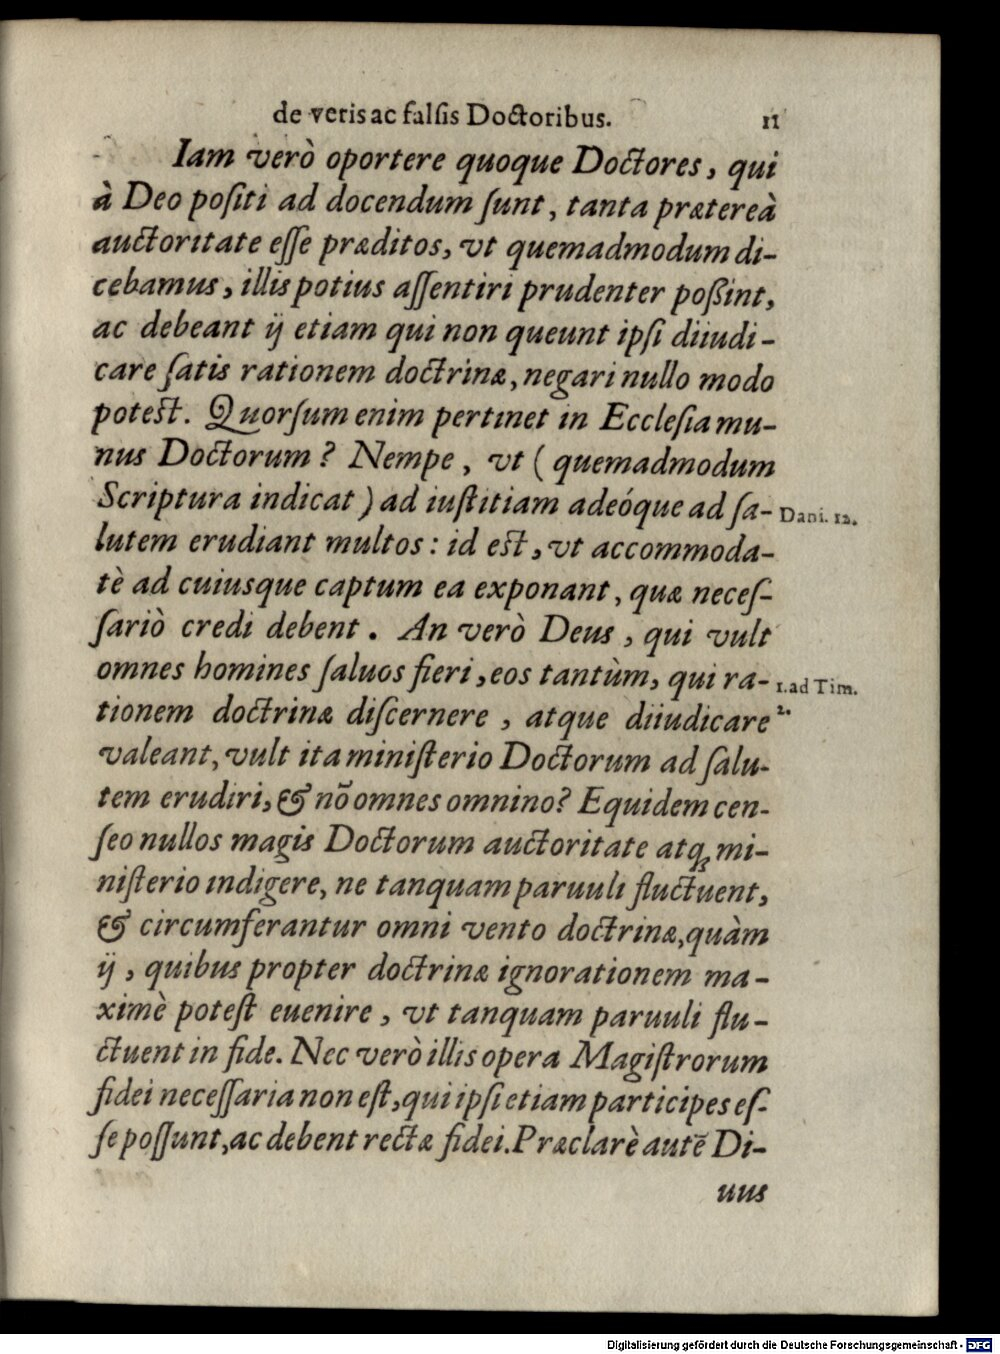 de veris ac falſis Doctoribus. 11
Iam verò oportere quoque Doctores, qui
à Deo poſiti ad docendum ſunt, tanta prætereà
auctoritate eſſe præditos, vt quemadmodum di-
cebamus, illis potius aſſentiri prudenter poßint,
ac debeant ij etiam qui non queunt ipſi diiudi-
care ſatis rationem doctrinæ, negari nullo modo
poteſt. Quorſum enim pertinet in Eccleſia mu-
nus Doctorum? Nempe, vt (quemadmodum
Scriptura indicat) ad iuſtitiam adeóque ad ſa- Dani. 12.
lutem erudiant multos: id eſt, vt accommoda-
tè ad cuiusque captum ea exponant, quæ neceſ-
ſariò credi debent. An verò Deus, qui vult
omnes homines ſaluos fieri, eos tantùm, qui ra- 1. ad Tim.
tionem doctrinæ diſcernere, atque diiudicare 2.
valeant, vult ita miniſterio Doctorum ad ſalu-
tem erudiri, & nõ omnes omnino? Equidem cen-
ſeo nullos magis Doctorum auctoritate atqꝫ mi-
niſterio indigere, ne tanquam paruuli fluctuent,
& circumferantur omni vento doctrinæ, quàm
ij, quibus propter doctrinæ ignorationem ma-
ximè poteſt euenire, vt tanquam paruuli flu-
ctuent in fide. Nec verò illis opera Magiſtrorum
fidei neceſſaria non eſt, qui ipſi etiam participes eſ-
ſe poſſunt, ac debent rectæ fidei. Præclarè autẽ Di-
uus
Digitalisierung gefördert durch die Deutsche Forschungsgemeinschaft - DFG